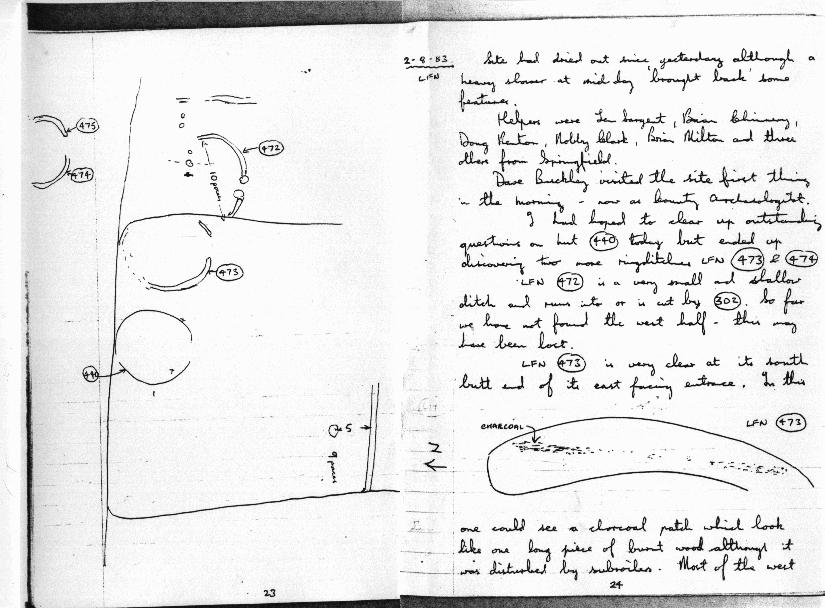 475
474
472
10 paces
473
440
5
9 paces
23
2-8-83
LFN
Site had dried out since yesterday although a
heavy shower at mid day 'brought back' some
features.
Helpers were Len Sargent, Brian
Doug, Nobby Clark, Brian Milton and three
others from Springfield.
Dave Buckley visited the site first thing
in the morning - now as County Archaeologist.
I had hoped to clear up outstanding
questions on hut 440 today but ended up
discovering two more ringditches LFN 473 & 474
LFN 472 is a very small and shallow
ditch and runs into or is cut by 302. So far
we have not found the west half - this may
have been lost.
LFN 473 is very clear at its south
butt end of its east facing entrance. In this
CHARCOAL
LFN 473
N
one could see a charcoal patch which look
like one long piece of burnt wood although it
was disturbed by subsoiler. Most of the west
24